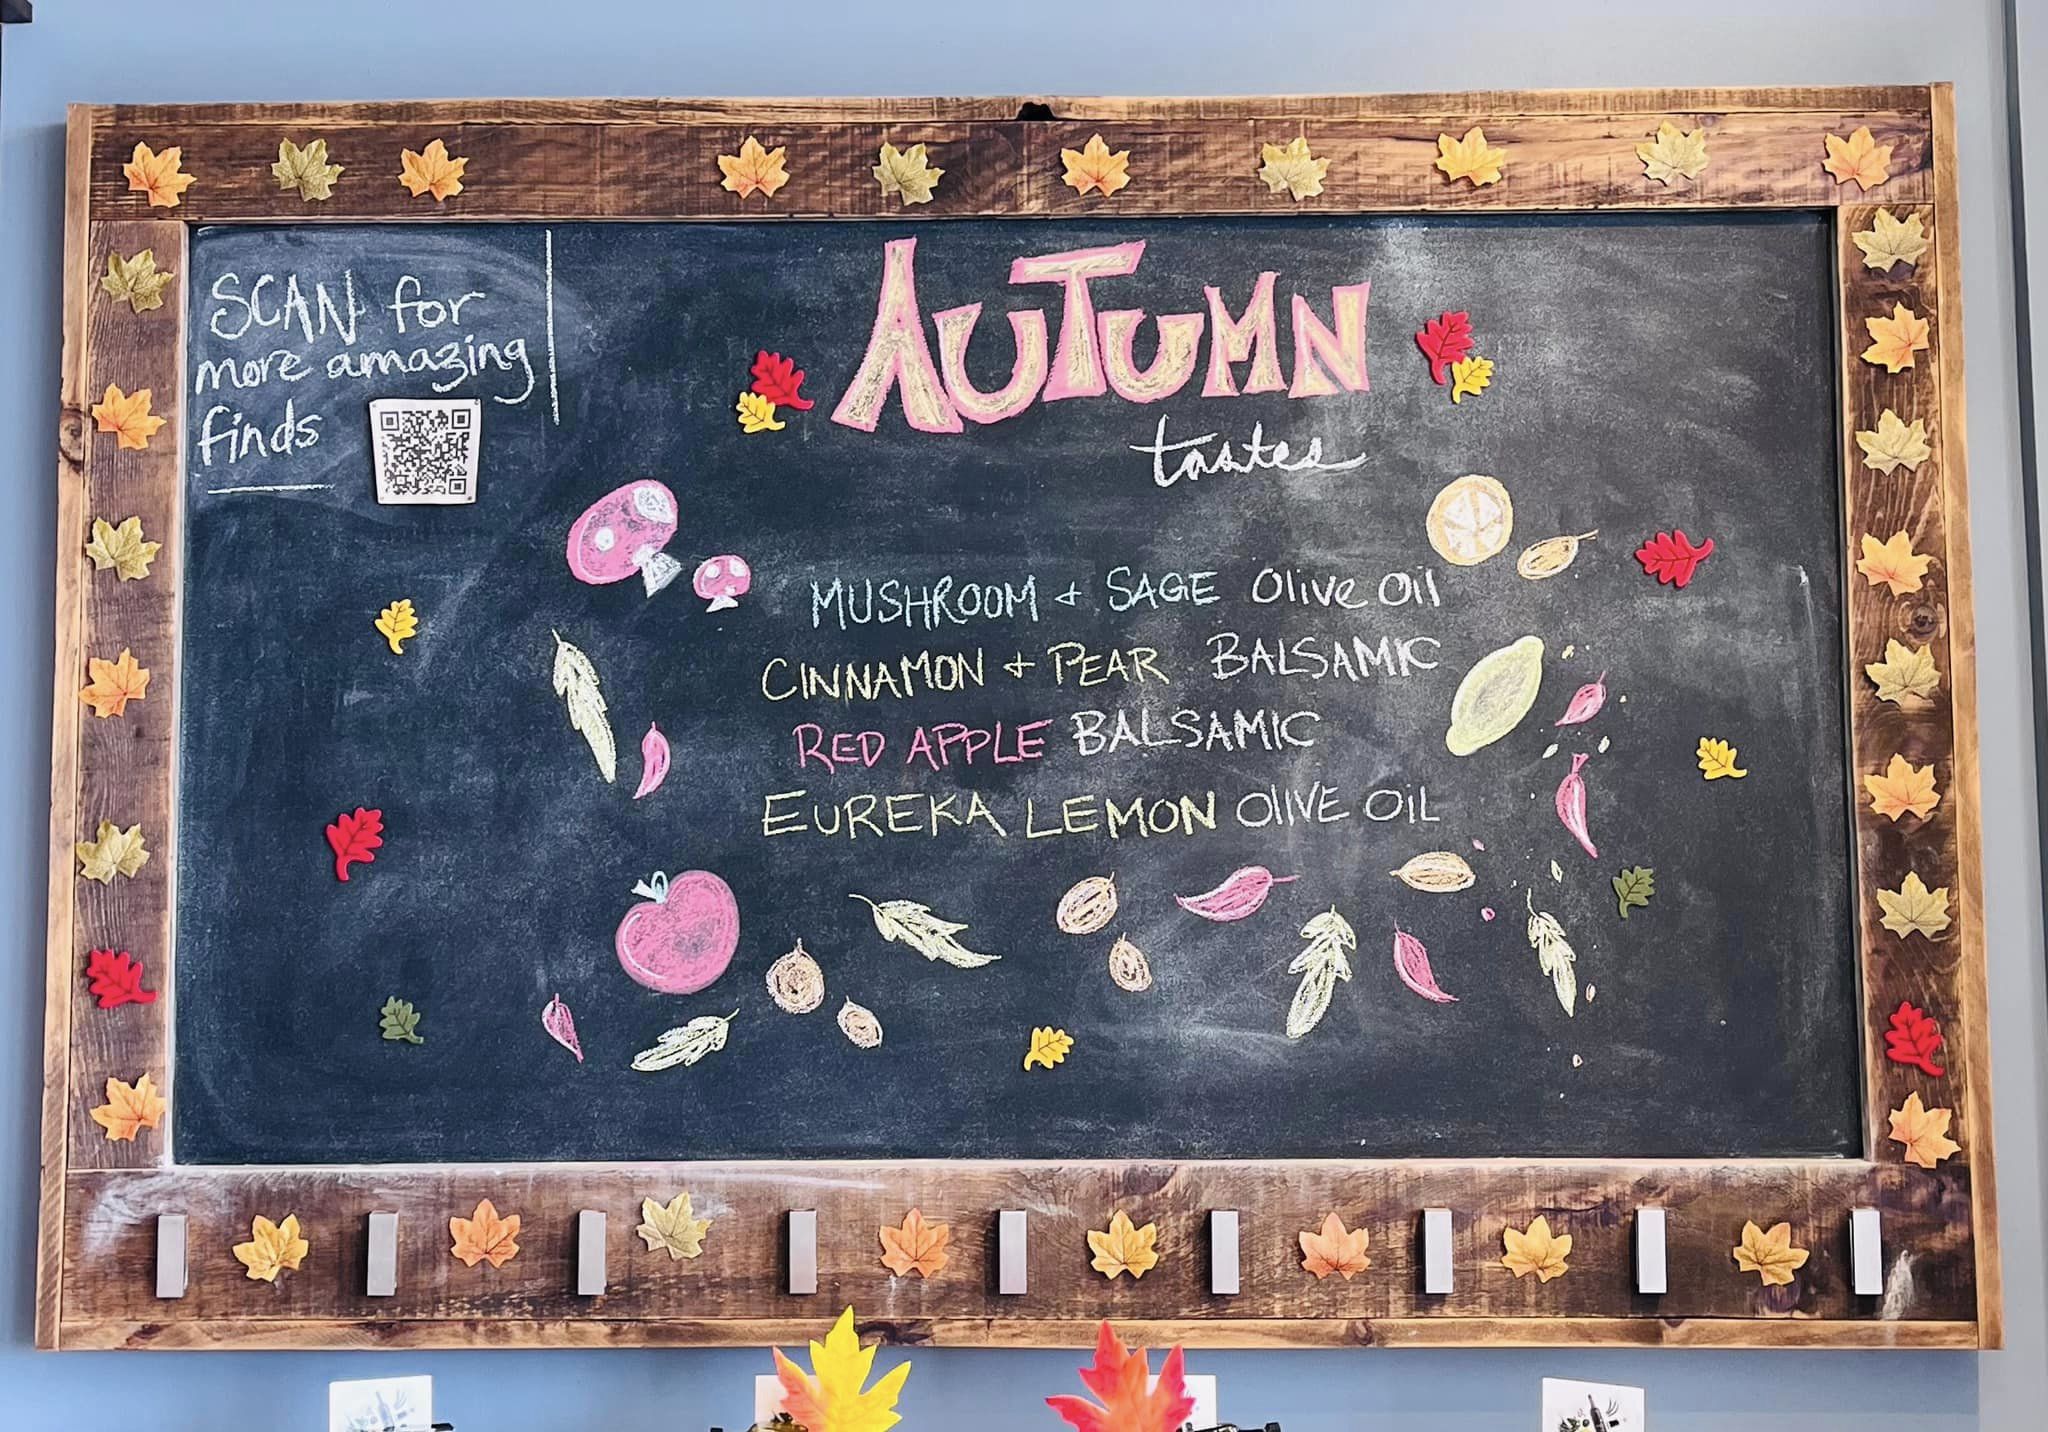 SCAN for
more amazing
finds
AUTUMN
tastes
MUSHROOM + SAGE Olive Oil
CINNAMON + PEAR BALSAMIC
RED APPLE BALSAMIC
EUREKA LEMON OLIVE OIL